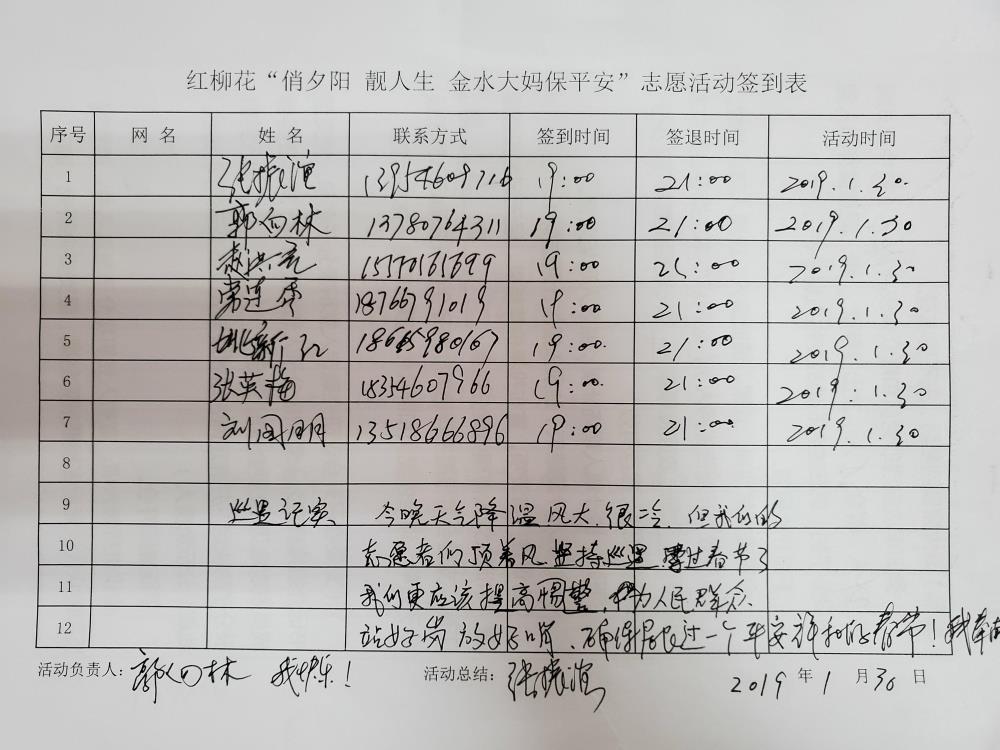 红柳花“俏夕阳 靓人生 金水大妈保平安”志愿活动签到表
序号 网 名 姓 名 联系方式 签到时间 签退时间 活动时间
1 张振谊 13954609716 19:00 21:00 2019.1.30.
2 郭向林 13780764311 19:00 21:00 2019.1.30
3 洪亮 15570161699 19:00 21:00 2019.1.30
4 常连 18766791019 19:00 21:00 2019.1.30
5 姚新红 18665980167 19:00. 21:00 2019.1.30
6 张英梅 18354607966 19:00. 21:00 2019.1.30
7 刘国明 13518666896 19:00 21:00 2019.1.30
8
9 巡逻记实 今晚天气降温风大,很冷,但我们的
10 志愿者们顶着风坚持巡逻,要过春节了
11 我们更应该提高惕警,为人民群众
12 站好岗 放好哨、确保居民过一个平安祥和的春节!我奉献
活动负责人:郭向林 我快乐! 活动总结:张振谊 2019 年 1 月 30 日